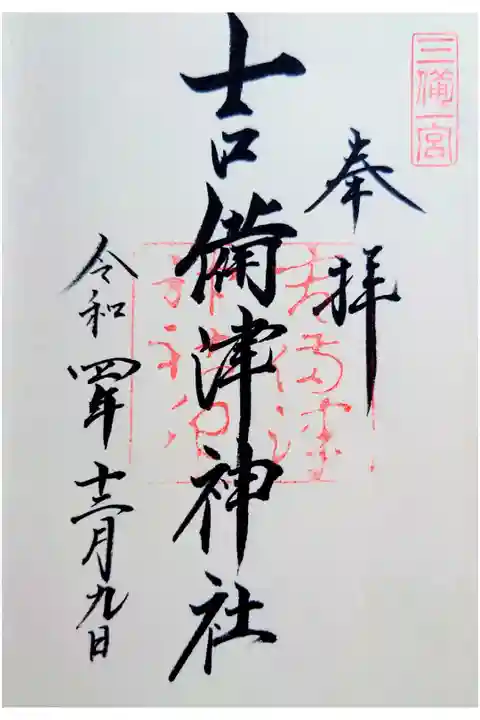 三備一宮
奉拝
吉備津神社
令和四年十二月九日